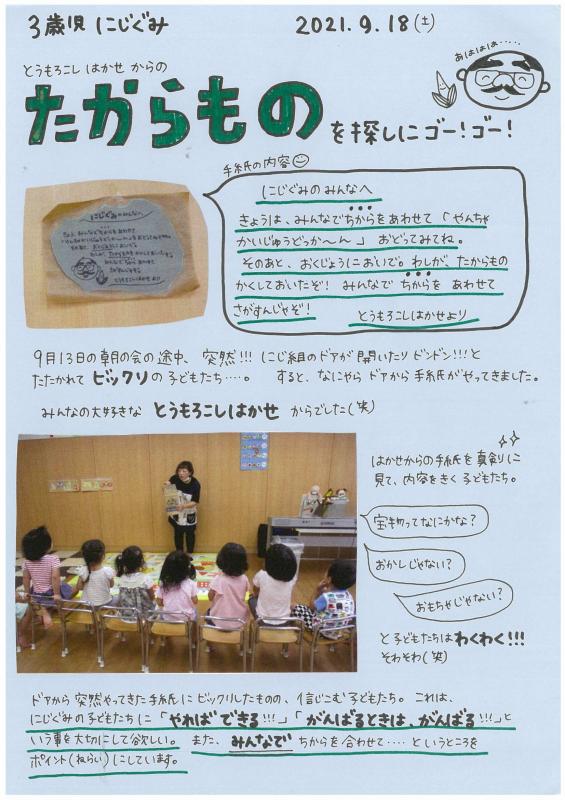 3歳児 にじぐみ 2021.9.18(土)
とうもろこし はかせ からの
あははは……
たからもの を探しにゴー!ゴー!
手紙の内容
にじぐみの みんなへ
きょうは、みんなでちからをあわせて「やんちゃ
かいじゅうどっか〜ん」 おどってみてね。
そのあと、おくじょうにおいで。わしが、たからもの
かくしておいたぞ! みんなで ちからを あわせて
さがすんじゃぞ! とうもろこしはかせより
にじぐみのみんなへ
9月13日の朝の会の途中、突然!!! にじ組のドアが開いたりドンドン!!!と
たたかれて ビックリ の子どもたち‥‥。 すると、なにやら ドアから 手紙がやってきました。
みんなの大好きな とうもろこしはかせ からでした(笑)
はかせからの手紙を真剣に
見て、内容をきく子どもたち。
宝物ってなにかな?
おかしじゃない?
おもちゃじゃない?
と子どもたちは わくわく!!!
そわそわ(笑)
ドアから 突然やってきた手紙に ビックリしたものの、信じこむ子どもたち。 これは、
にじぐみの子どもたちに「やればできる!!!」「がんばるときは、がんばる!!!」と
いう事を大切にして欲しい。 また、みんなで ちからを合わせて‥‥ というところを
ポイント(ねらい)にしています。